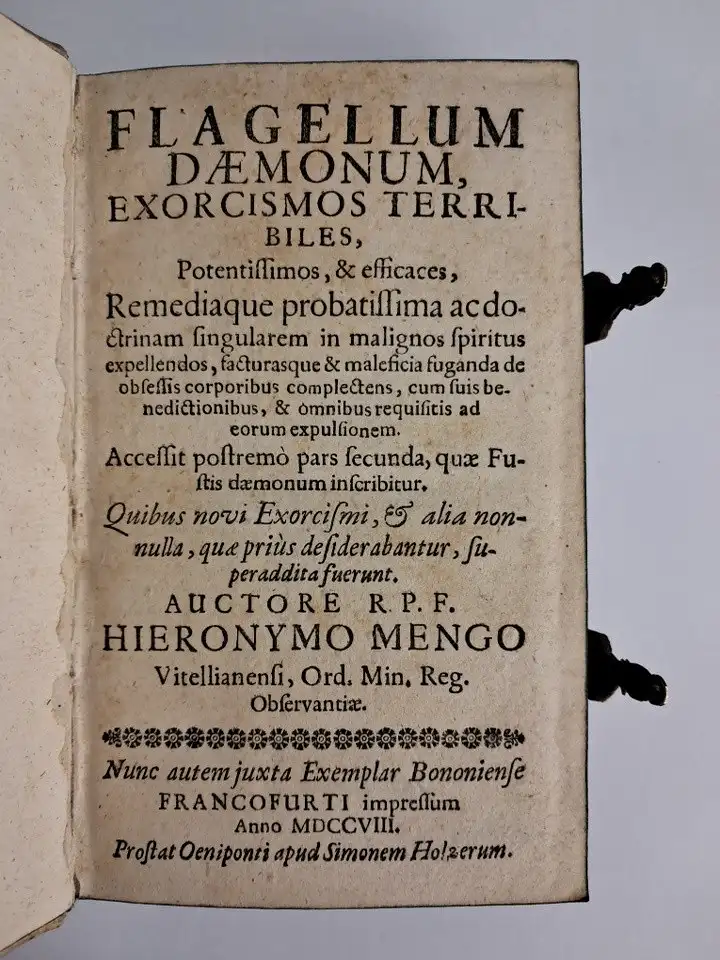 FLAGELLUM
DÆMONUM,
EXORCISMOS TERRI-
BILES,
Potentiſſimos, & efficaces,
Remediaque probatiſſima ac do-
ctrinam ſingularem in malignos ſpiritus
expellendos, facturasque & maleficia fuganda de
obſeſſis corporibus complectens, cum ſuis be-
nedictionibus, & omnibus requiſitis ad
eorum expulſionem.
Acceſſit poſtremò pars ſecunda, quæ Fu-
ſtis dæmonum inſcribitur.
Quibus novi Exorciſmi, & alia non-
nulla, quæ priùs deſiderabantur, ſu-
peraddita fuerunt.
AUCTORE R. P. F.
HIERONYMO MENGO
Vitellianenſi, Ord. Min. Reg.
Obſervantiæ.
Nunc autem juxta Exemplar Bononienſe
FRANCOFURTI impreſſum
Anno MDCCVIII.
Proſtat Oeniponti apud Simonem Holzerum.